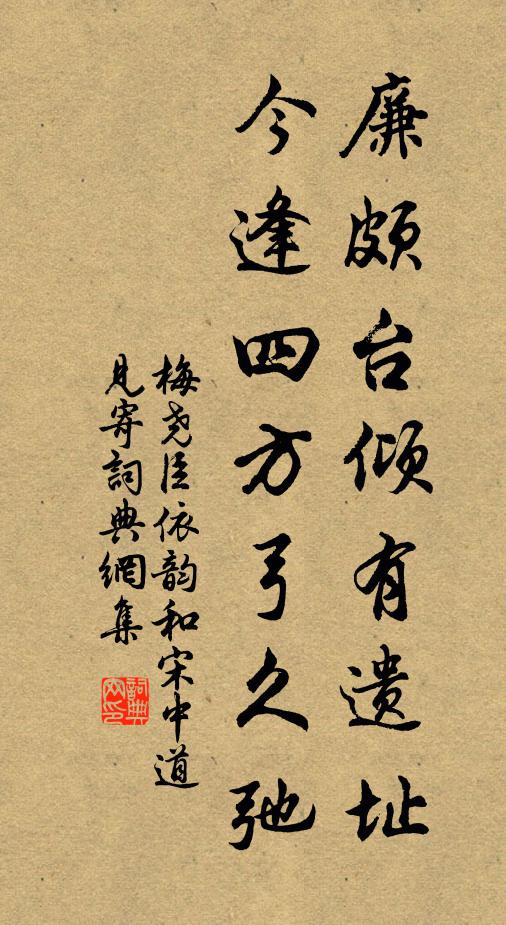 廉颇台倾有遗址
今逢四方弓久弛
梅尧臣依韵和宋中道
見寄詞典網集
詞典網印